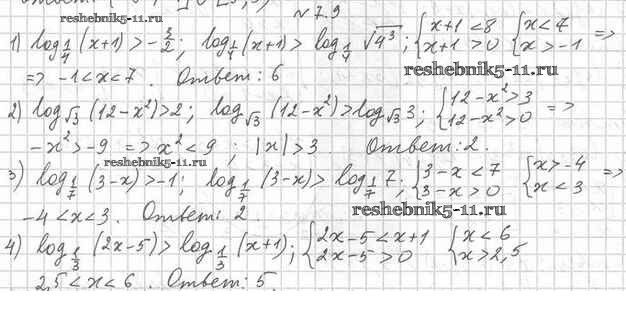 №7.9
1) log_{1/4}(x+1) > -3/2; log_{1/4}(x+1) > log_{1/4} √4³; {x+1<8 x+1>0 {x<7 x>-1 =>
reshebnik5-11.ru
=> -1<x<7. Ответ: 6
reshebnik5-11.ru
2) log_{√3}(12-x²)>2; log_{√3}(12-x²)>log_{√3}3; {12-x²>3 12-x²>0 =>
-x²>-9 => x²<9; |x|>3. Ответ: 2.
reshebnik5-11.ru
3) log_{1/7}(3-x)>-1; log_{1/7}(3-x)>log_{1/7}7; {3-x<7 3-x>0 {x>-4 x<3 =>
-4<x<3. Ответ: 2.
reshebnik5-11.ru
4) log_{1/3}(2x-5)>log_{1/3}(x+1); {2x-5<x+1 2x-5>0 {x<6 x>2,5
2,5<x<6. Ответ: 5.